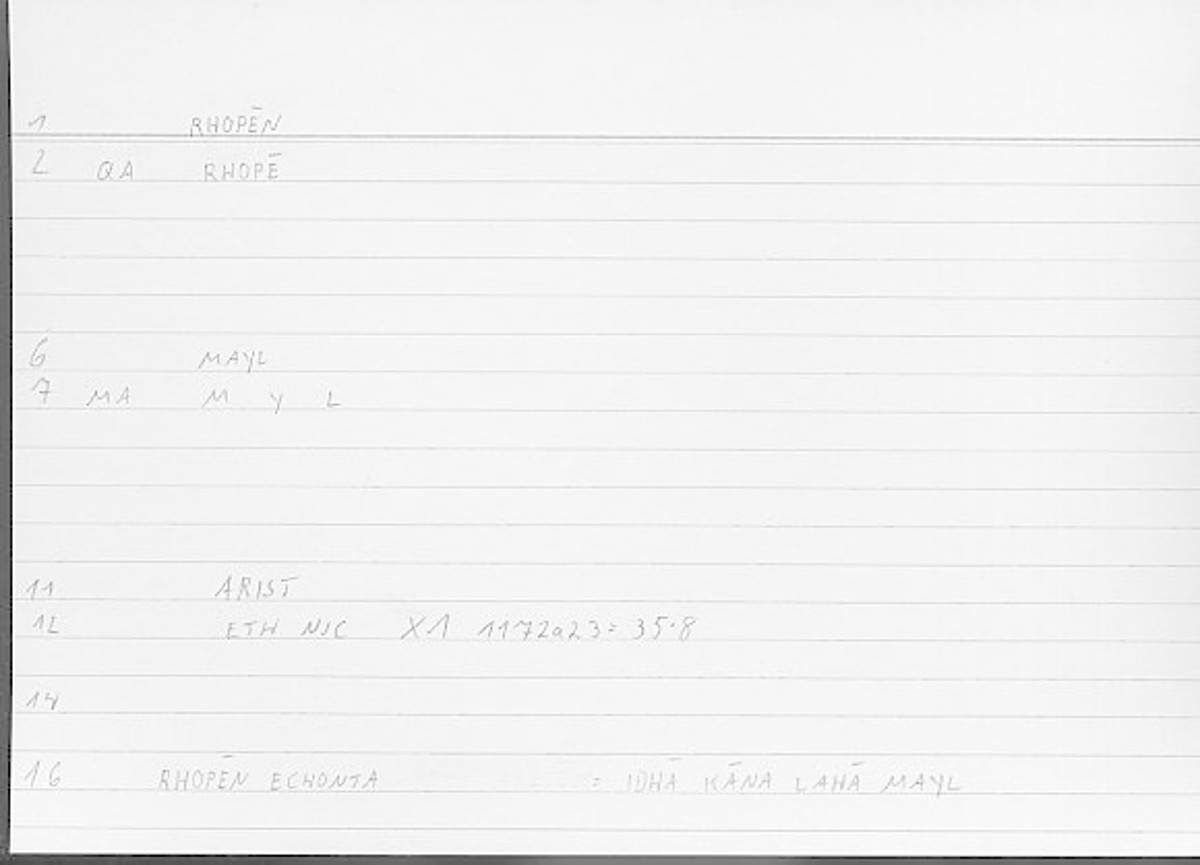 1 RHOPĒN
2 QA RHOPĒ
6 MAYL
7 MA M Y L
11 ARIST
12 ETH NIC X1 1172a23 = 35.8
14
16 RHOPĒN ECHONTA = IDHĀ KĀNA LAHĀ MAYL